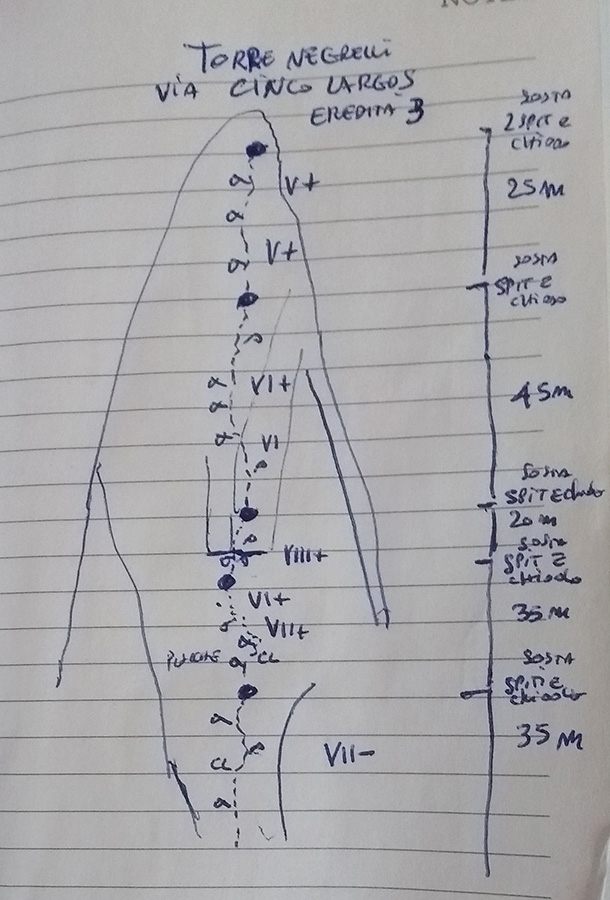 NOTE
TORRE NEGRELLI
VIA CINCO LARGOS
EREDITÀ 3
SOSTA
2 SPIT E
CHIODO
V+
25 M
V+
SOSTA
SPIT E
CHIODO
VI+
45 M
VI
SOSTA
SPIT E chiodo
20 M
SOSTA
VIII+
SPIT E
chiodo
VI+
35 M
VII+
CL
SOSTA
SPIT E
chiodo
35 M
VII-
CL